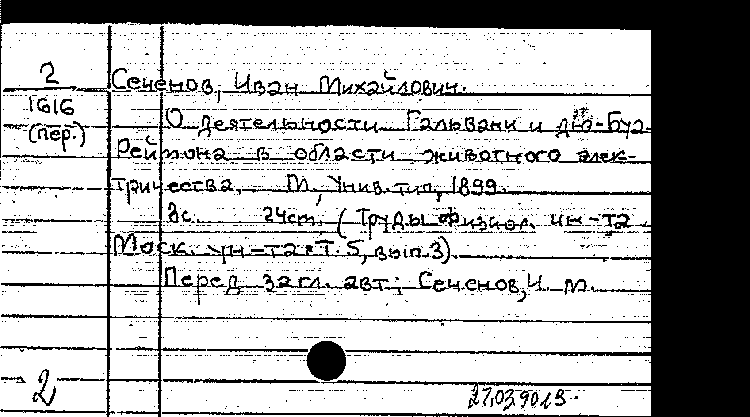 2
1616
(пер.)
Сеченов, Иван Михайлович.
О деятельности Гальвани и дю-Буа-
Реймона в области животного элек-
тричества. М., Унив. тип., 1899.
8с. 24см. (Труды Физиол. ин-та
Моск. ун-та т. 5, вып. 3).
Перед загл. авт.: Сеченов, И. М.
2